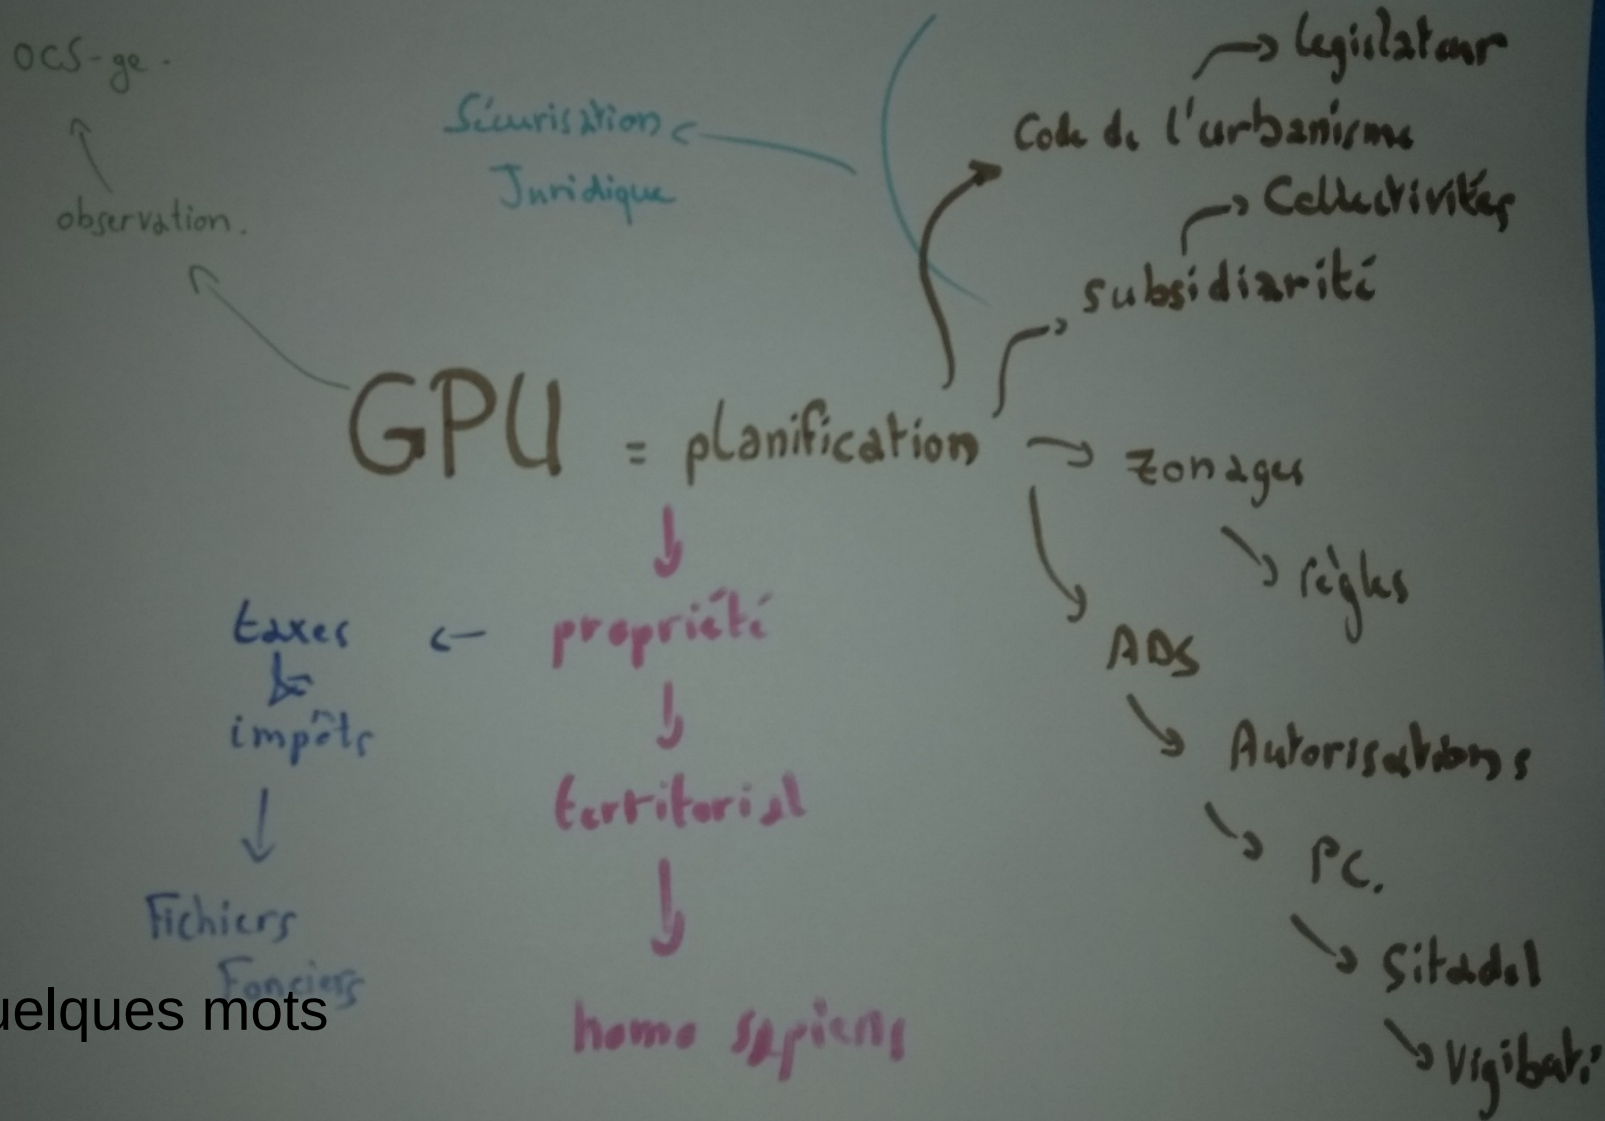 OCS-ge.
observation.
Sécurisation
Juridique
legislateur
Code de l'urbanisme
Collectivités
subsidiarité
GPU = planification
zonages
règles
ADS
Autorisations
PC.
Sitadel
Vigibati
propriété
territorial
homo sapiens
taxes
&
impôts
Fichiers
Fonciers
uelques mots